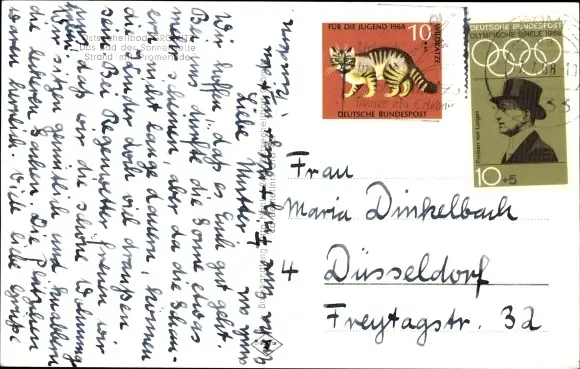 Ostseeheilbad GRÖMITZ
Das Bad der Sonnenseite
Strand mit Promenade
Liebe Mutter!
Wir hoffen, daß es Euch gut geht.
Bei uns dürfte die Sonne etwas
mehr scheinen, aber da die Schau-
er nicht lange dauern, können
die Kinder doch viel draußen
sein. Bei Regenwetter freuen wir
uns, daß wir die schöne Wohnung
haben. Wir sitzen gemütlich und knabbern
die leckeren Sachen. Die Plätzchen
waren herrlich. Viele liebe Grüße
FÜR DIE JUGEND 1968
10
+5
WILDKATZE
DEUTSCHE BUNDESPOST
DEUTSCHE BUNDESPOST
OLYMPISCHE SPIELE 1968
Freiherr von Langen
10+5
Frau
Maria Dinkelbach
4 Düsseldorf
Freytagstr. 32